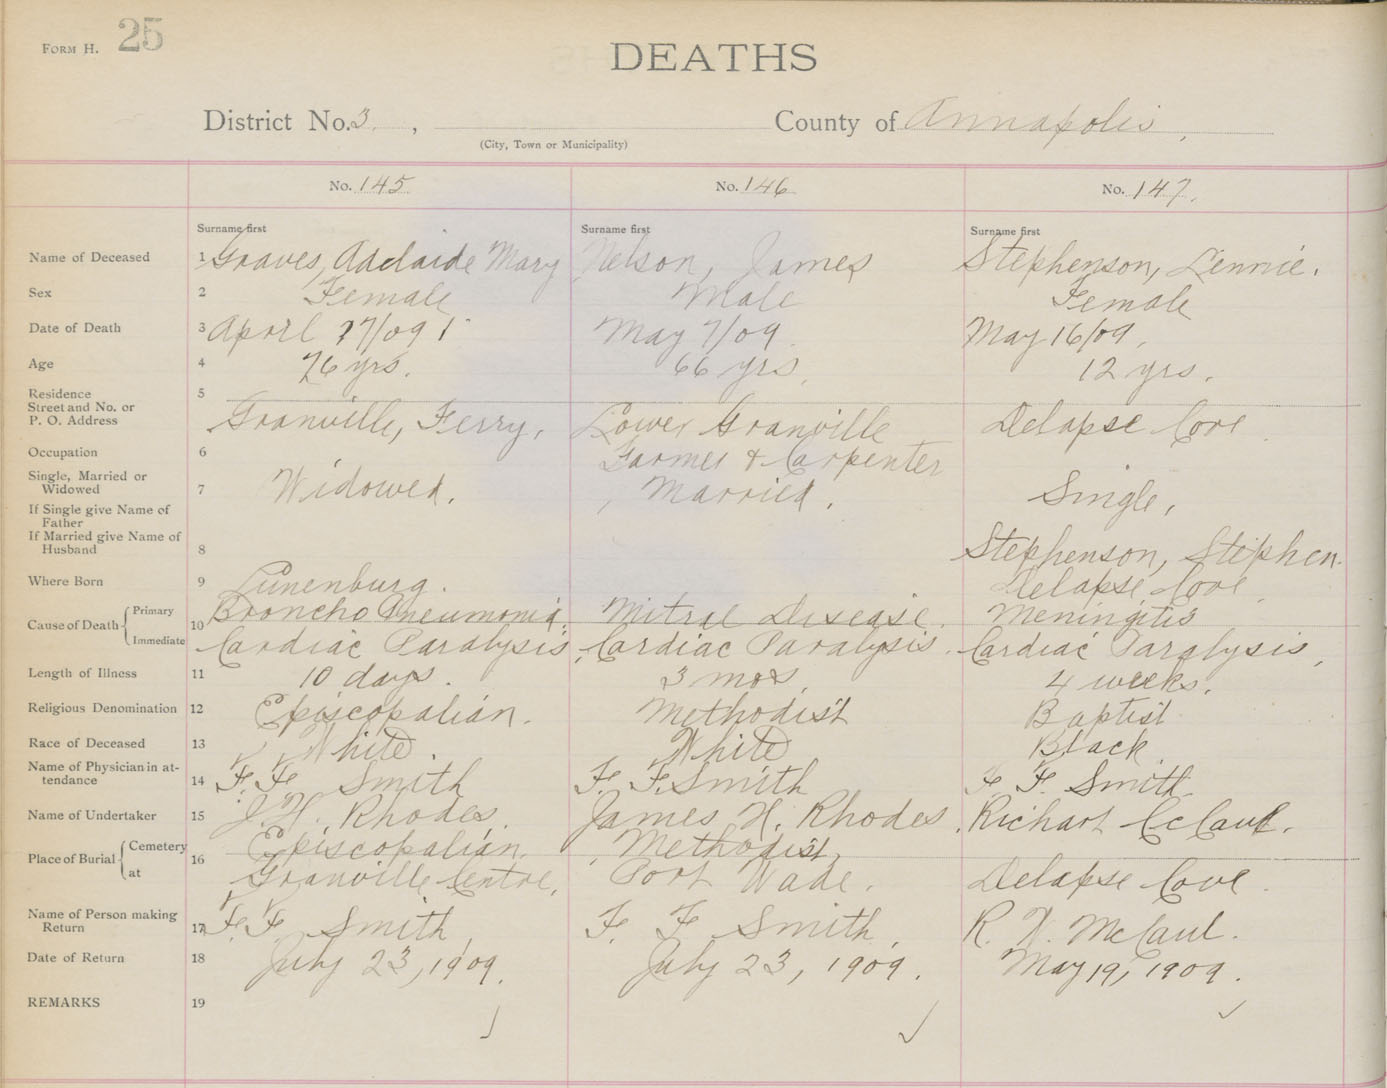 FORM H. 25
DEATHS
District No. 3, County of Annapolis,
(City, Town or Municipality)
No. 145 No. 146 No. 147.
Surname first Surname first Surname first
Name of Deceased 1 Graves, Adelaide Mary Nelson, James Stephenson, Lennie.
Sex 2 Female Male Female
Date of Death 3 April 27/09 May 7/09. May 16/09.
Age 4 76 yrs. 66 yrs. 12 yrs.
Residence 5
Street and No. or
P. O. Address Granville, Ferry, Lower Granville Delapse Cove.
Occupation 6 Farmer & Carpenter
Single, Married or
Widowed 7 Widowed. Married. Single,
If Single give Name of
Father
If Married give Name of
Husband 8 Stephenson, Stephen.
Where Born 9 Lunenburg. Delapse Cove
Cause of Death Primary 10 Broncho Pneumonia. Mitral Disease. Meningitis
Immediate Cardiac Paralysis, Cardiac Paralysis. Cardiac Paralysis,
Length of Illness 11 10 days. 3 mos. 4 weeks.
Religious Denomination 12 Episcopalian. Methodist Baptist
Race of Deceased 13 White. White Black
Name of Physician in at-
tendance 14 F. F. Smith F. F. Smith F. F. Smith
Name of Undertaker 15 J. H. Rhodes. James H. Rhodes. Richart
Place of Burial Cemetery 16 Episcopalian. Methodist,
at Granville Centre, Port Wade. Delapse Cove.
Name of Person making
Return 17 F. F. Smith, F. F. Smith, R. W. McCaul.
Date of Return 18 July 23, 1909. July 23, 1909. May 19, 1909.
REMARKS 19